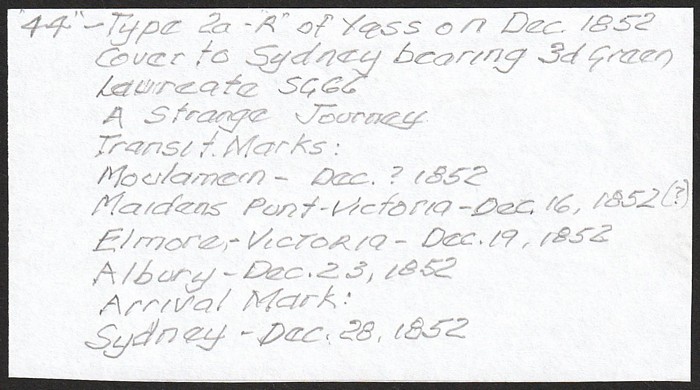 "44" - Type 2a - "R" of Yass on Dec. 1852
Cover to Sydney bearing 3d Green
Laureate SG66
A Strange Journey
Transit Marks:
Moulamein - Dec. ? 1852
Maidens Punt - Victoria - Dec. 16, 1852 (?)
Elmore, - VICTORIA - Dec. 19, 1852
Albury - Dec. 23, 1852
Arrival Mark:
Sydney - Dec. 28, 1852